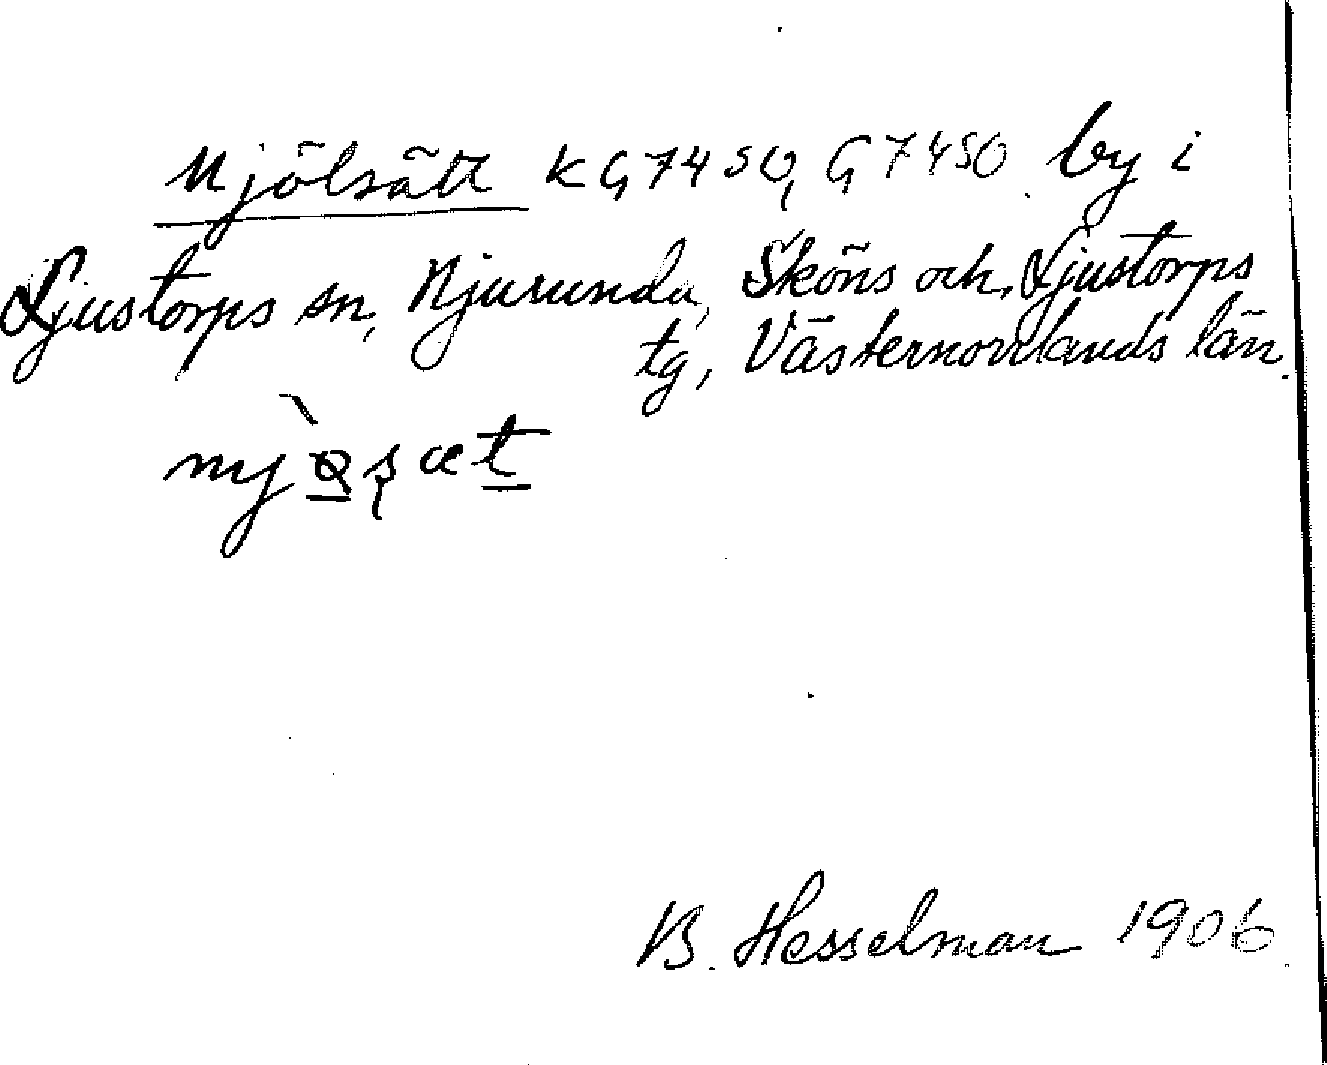 Njölsätt KG7450, G7450 by i
Ljustorps sn, Njurunda, Sköns och Ljustorps
tg, Västernorrlands län.
B. Hesselman 1906.